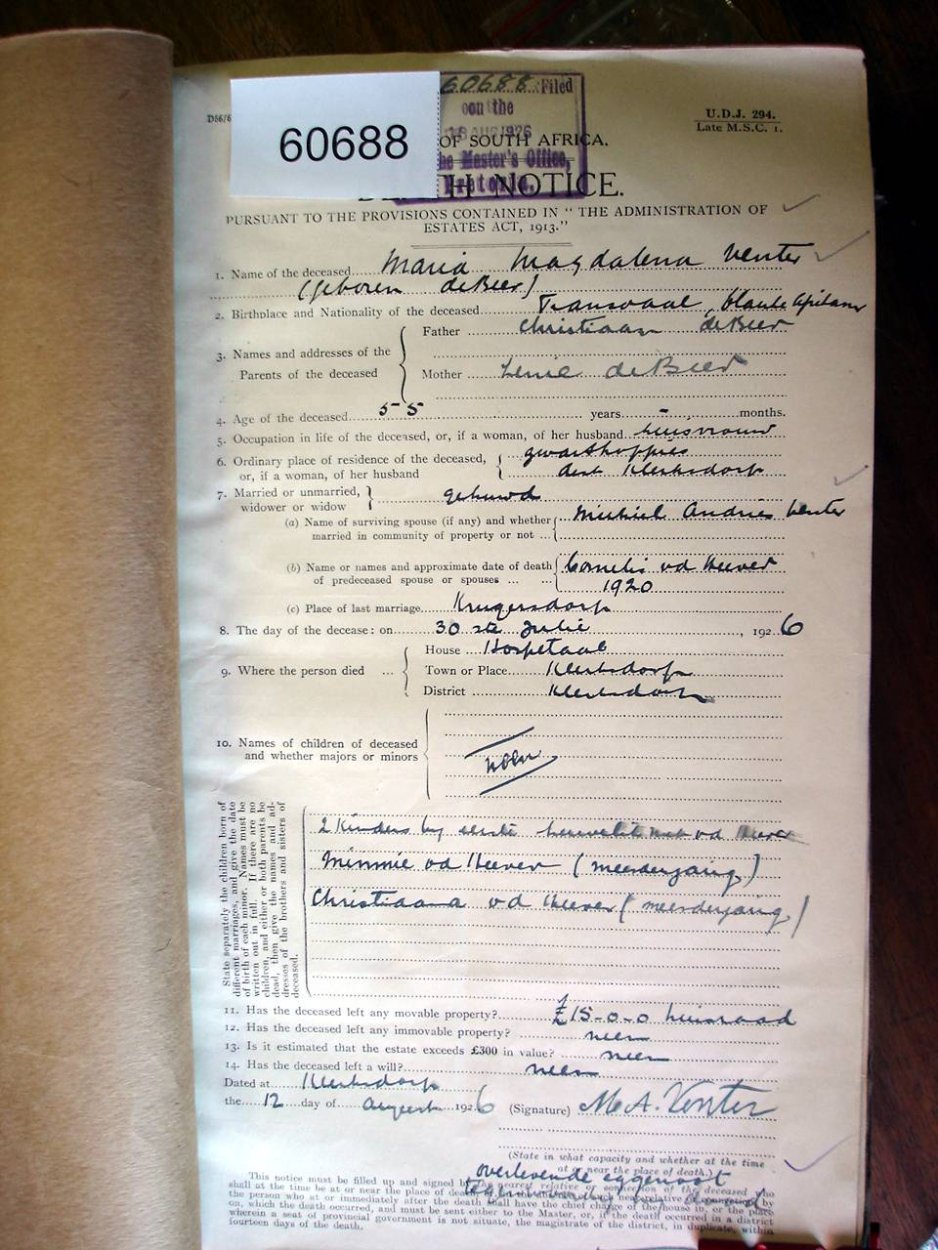 60688
60688 Filed
on the
AUG 1926
the Master's Office,
Pretoria.
D56/6
U.D.J. 294.
Late M.S.C. 1.
OF SOUTH AFRICA.
DEATH NOTICE.
PURSUANT TO THE PROVISIONS CONTAINED IN "THE ADMINISTRATION OF
ESTATES ACT, 1913."
1. Name of the deceased Maria Magdalena Venter
(geboren de Beer)
2. Birthplace and Nationality of the deceased Transvaal, blanke
3. Names and addresses of the Parents of the deceased
Father Christiaan de Beer
Mother Lenie de Beer
4. Age of the deceased 55 years - months.
5. Occupation in life of the deceased, or, if a woman, of her husband huisvrouw
6. Ordinary place of residence of the deceased,
or, if a woman, of her husband
dist Klerksdorp
7. Married or unmarried,
widower or widow gehuwd
(a) Name of surviving spouse (if any) and whether Michiel Andries Venter
married in community of property or not ...
(b) Name or names and approximate date of death Cornelis vd Heever
of predeceased spouse or spouses ... ... 1920
(c) Place of last marriage Krugersdorp
8. The day of the decease: on 30 ste Julie, 1926
9. Where the person died ...
House Hospitaal
Town or Place Klerksdorp
District Klerksdorp
10. Names of children of deceased
and whether majors or minors
State separately the children born of
different marriages, and give the date
of birth of each minor. Names must be
written out in full. If there are no
children, and either or both parents be
dead, then give the names and ad-
dresses of the brothers and sisters of
deceased.
2 Kinders by eerste huwelik met vd Heever
Minnie vd Heever (meerderjarig)
Christiaana vd Heever (meerderjarig)
11. Has the deceased left any movable property? £15-0-0 huisraad
12. Has the deceased left any immovable property? neen
13. Is it estimated that the estate exceeds £300 in value? neen
14. Has the deceased left a will? neen
Dated at Klerksdorp
the 12 day of 1926 (Signature) M. A. Venter
(State in what capacity and whether at the time
at or near the place of death.)
overlevende eggenoot
This notice must be filled up and signed by the nearest relative or connection of the deceased who
shall at the time be at or near the place of death
the person who at or immediately after the death shall have the chief charge of the house in, or the place
on, which the death occurred, and must be sent either to the Master, or, if the death occurred in a district
wherein a seat of provincial government is not situate, the magistrate of the district, in duplicate, within
fourteen days of the death.